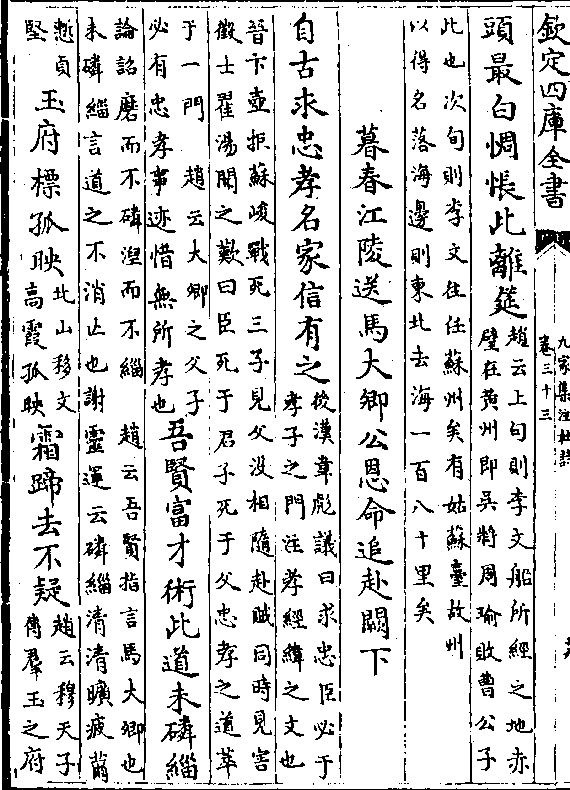 欽定四庫全書
九家集注杜詩
卷三十三
頭最白惆悵此離筵
趙云上句則李文船所經之地赤
壁在黄州即吳將周瑜敗曹公子
此也次句則李文往任蘇州矣有姑蘇臺故州
以得名落海邊則東北去海一百八十里矣
暮春江陵送馬大卿公恩命追赴闕下
自古求忠孝名家信有之
後漢韋彪議曰求忠臣必于
孝子之門注孝經緯之文也
晉卞壺拒蘇峻戰死三子見父没相隨赴賊同時見害
徵士翟湯聞之歎曰臣死于君子死于父忠孝之道萃
于一門 趙云大卿之父子
必有忠孝事迹惜無所孝也
吾賢富才術此道未磷緇
趙云吾賢指言馬大卿也
論語磨而不磷湼而不緇
未磷緇言道之不消止也謝靈運云磷緇清曠疲薾
慙貞
堅
玉府標孤映
北山移文
高霞孤映
霜蹄去不疑
趙云穆天子
傳羣玉之府